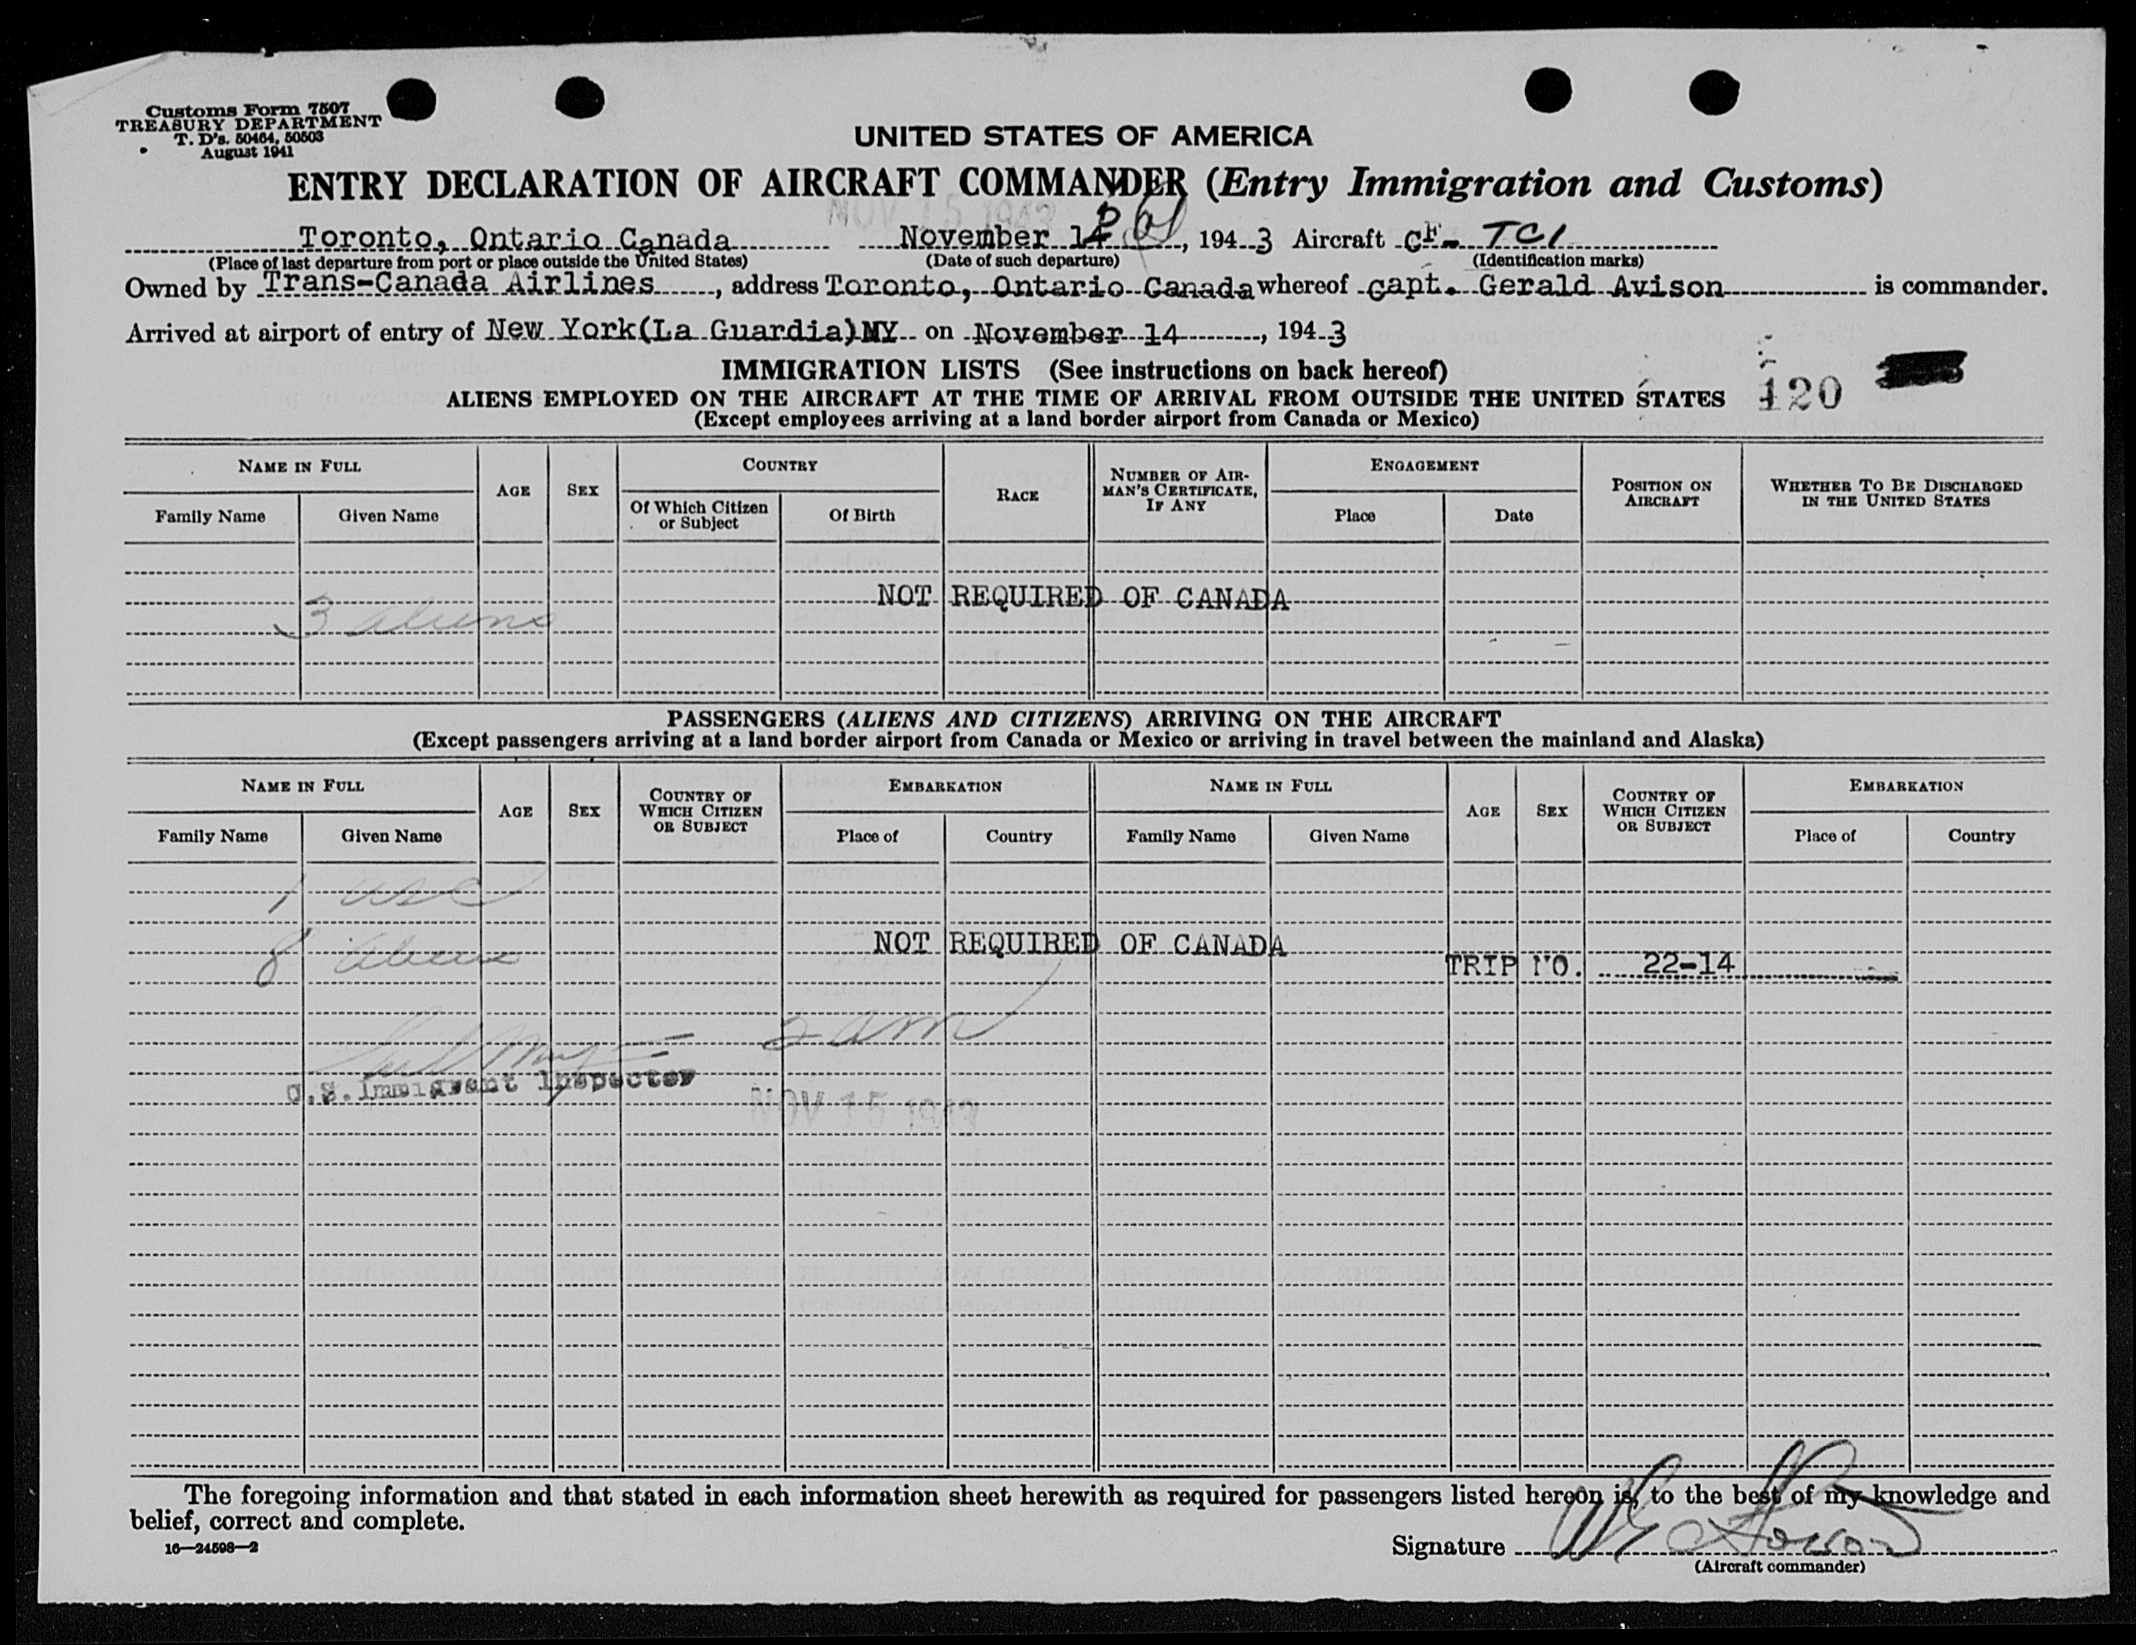 Customs Form 7507
TREASURY DEPARTMENT
T. D's. 50464, 50503
August 1941
UNITED STATES OF AMERICA
ENTRY DECLARATION OF AIRCRAFT COMMANDER (Entry Immigration and Customs)
NOV 15 1943
Toronto, Ontario Canada November 14, 1943 Aircraft CF- TCI
(Place of last departure from port or place outside the United States) (Date of such departure) (Identification marks)
Owned by Trans-Canada Airlines, address Toronto, Ontario Canada whereof Capt. Gerald Avison is commander.
Arrived at airport of entry of New York(La Guardia)NY on November 14, 1943
IMMIGRATION LISTS (See instructions on back hereof)
ALIENS EMPLOYED ON THE AIRCRAFT AT THE TIME OF ARRIVAL FROM OUTSIDE THE UNITED STATES 120
(Except employees arriving at a land border airport from Canada or Mexico)
NAME IN FULL AGE SEX COUNTRY RACE NUMBER OF AIRMAN'S CERTIFICATE, IF ANY ENGAGEMENT POSITION ON AIRCRAFT WHETHER TO BE DISCHARGED IN THE UNITED STATES
Family Name Given Name Of Which Citizen or Subject Of Birth Place Date
NOT REQUIRED OF CANADA
3 aliens
PASSENGERS (ALIENS AND CITIZENS) ARRIVING ON THE AIRCRAFT
(Except passengers arriving at a land border airport from Canada or Mexico or arriving in travel between the mainland and Alaska)
NAME IN FULL AGE SEX COUNTRY OF WHICH CITIZEN OR SUBJECT EMBARKATION NAME IN FULL AGE SEX COUNTRY OF WHICH CITIZEN OR SUBJECT EMBARKATION
Family Name Given Name Place of Country Family Name Given Name Place of Country
1 USC
8 Aliens NOT REQUIRED OF CANADA
TRIP NO. 22-14
2 am
U.S. Immigrant Inspector
NOV 15 1943
The foregoing information and that stated in each information sheet herewith as required for passengers listed hereon is, to the best of my knowledge and
belief, correct and complete.
16—24598—2
Signature
(Aircraft commander)